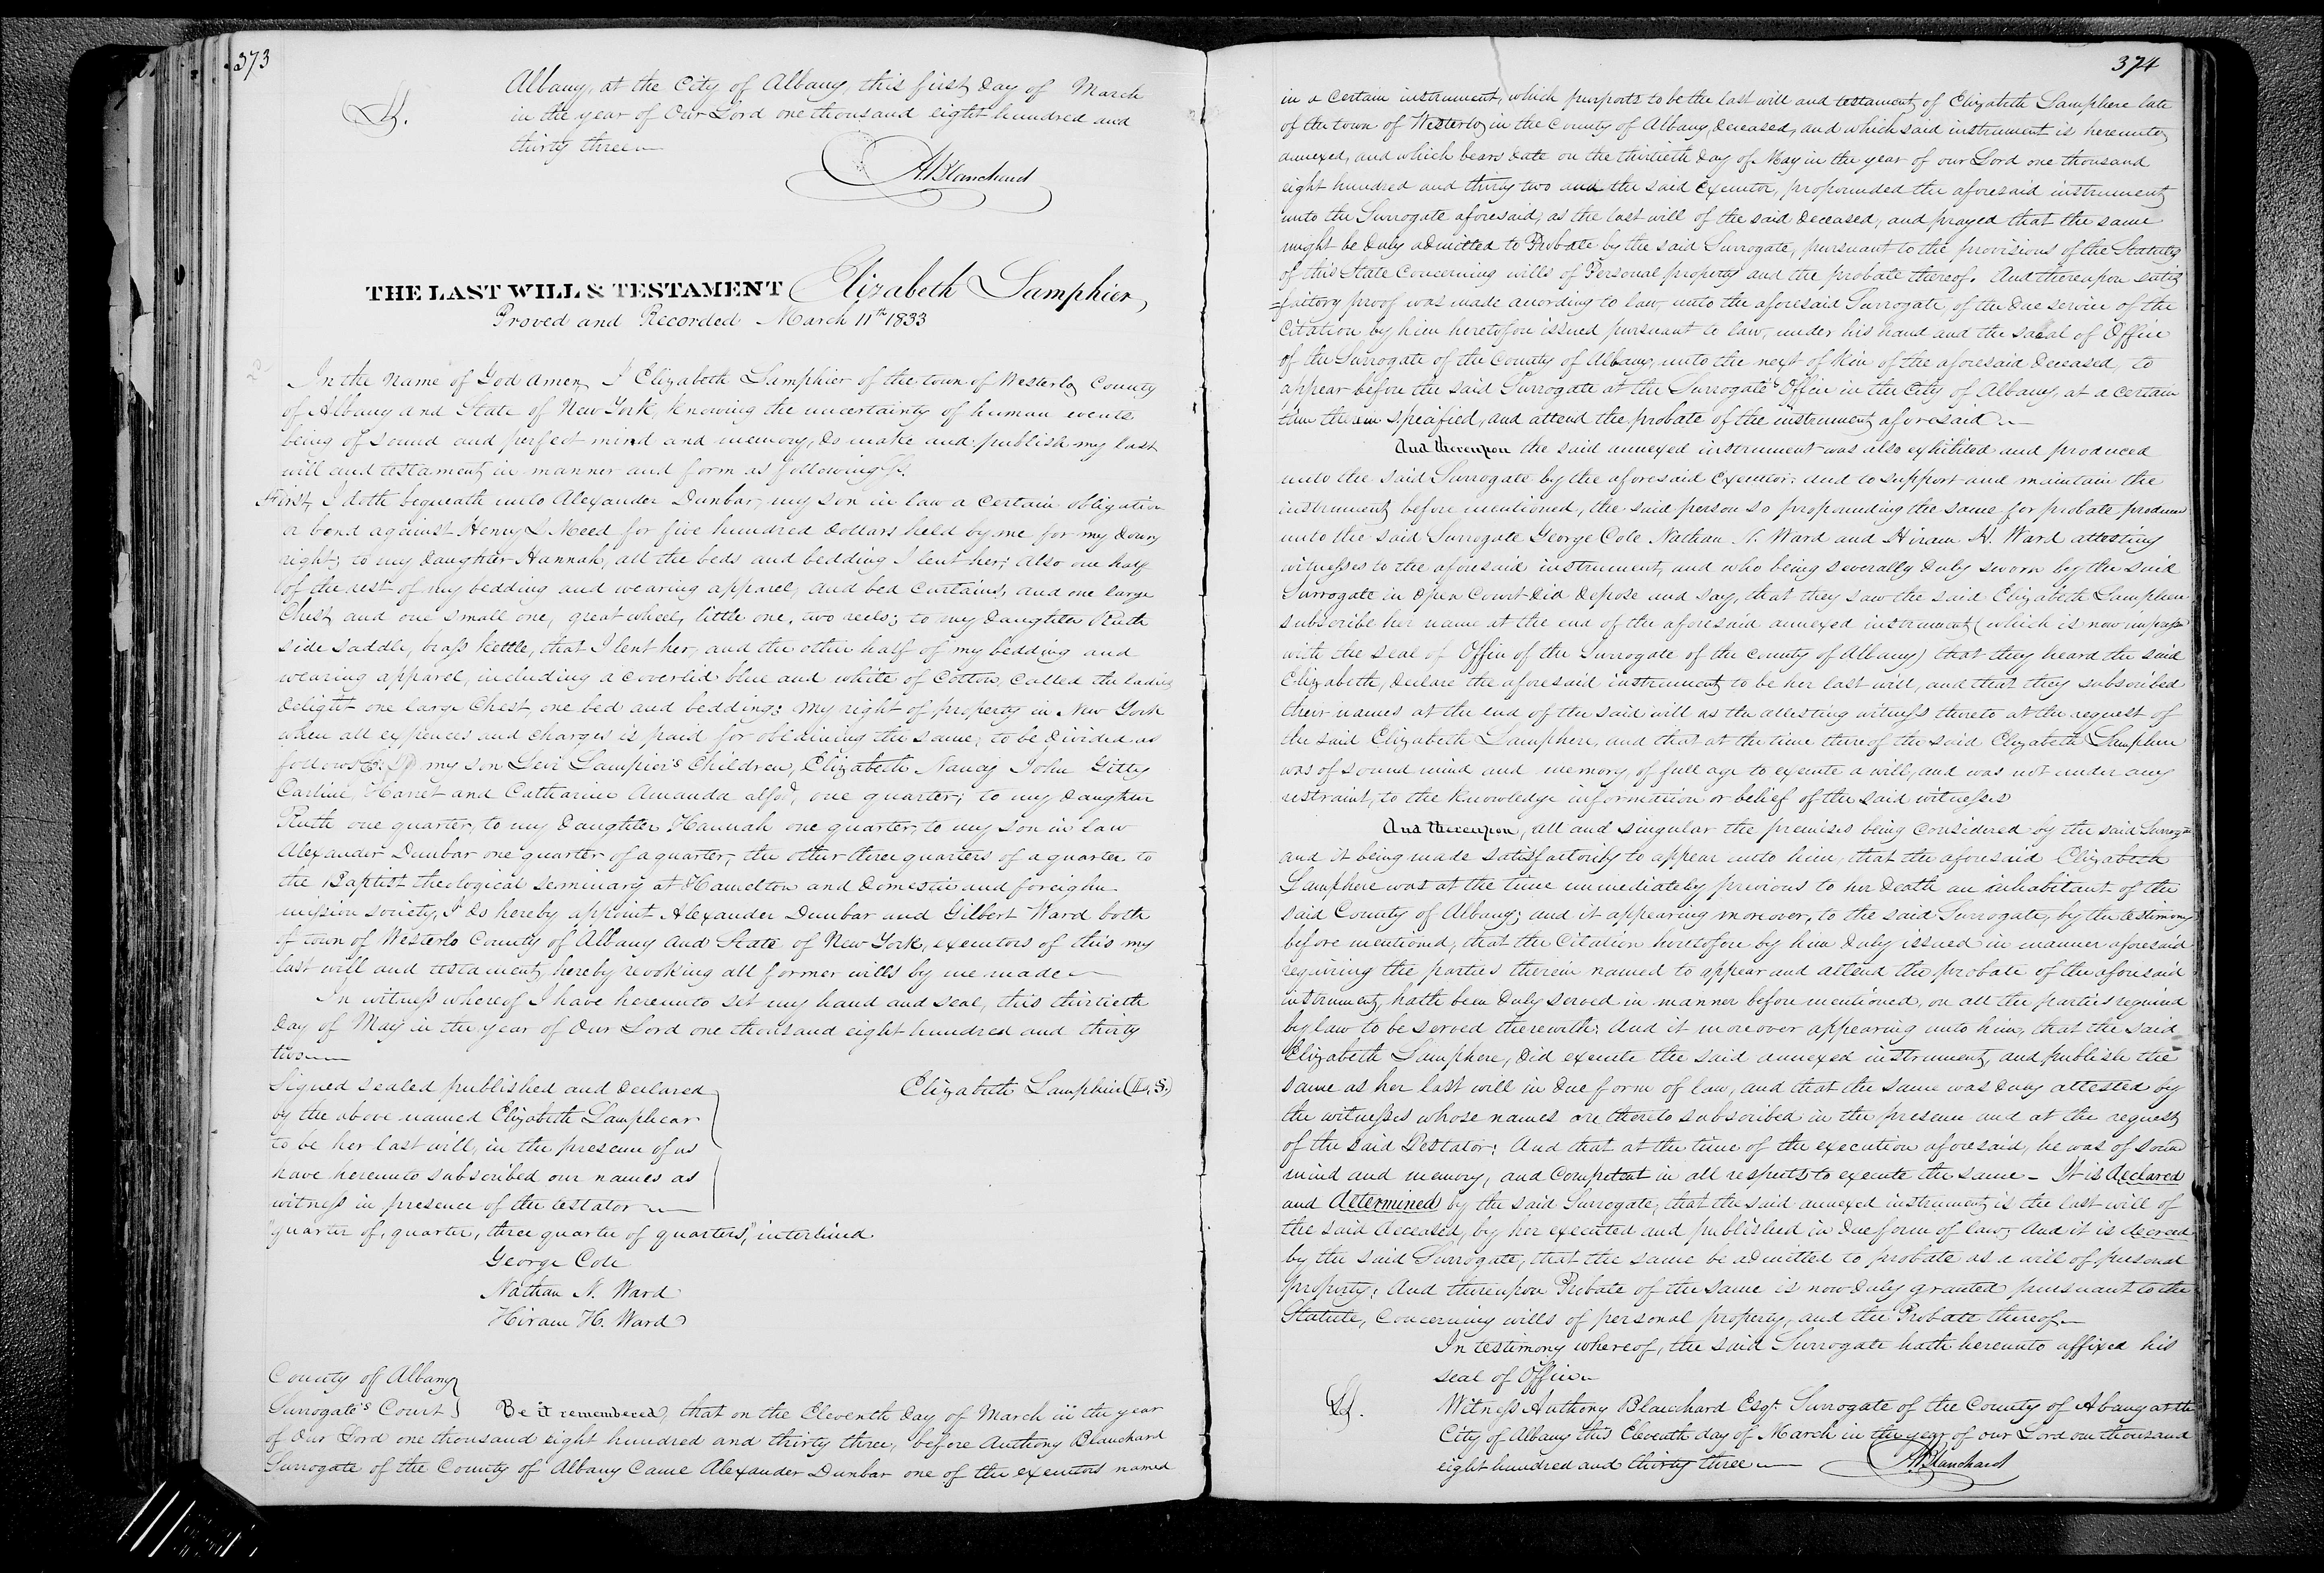 373
Albany, at the City of Albany, this first Day of March
in the year of Our Lord one thousand eight hundred and
thirty three
A Blanchard
THE LAST WILL & TESTAMENT Elizabeth Lamphier,
Proved and Recorded March 11th 1833
In the Name of God Amen, I Elizabeth Lamphier of the town of Westerlo County
of Albany and State of New York, knowing the uncertainty of human events
being of sound and perfect mind and memory, do make and publish my last
will and testament in manner and form as following
First, I doth bequeath unto Alexander Dunbar, my son in law a certain obligation
or bond against Henry L Meed for five hundred Dollars held by me, for my Dowry
right; to my Daughter Hannah, all the beds and bedding I lent her; also one half
of the rest of my bedding and wearing apparel, and bed curtains, and one large
Chest, and one small one, great wheel, little one, two reels; to my Daughter Ruth
side saddle, brass kettle, that I lent her, and the other half of my bedding and
wearing apparel, including a coverlid blue and white of Cotton, called the ladies
delight one large Chest, one bed and bedding; my right of property in New York
when all expences and charges is paid for obtaining the same; to be divided as
follows my son Levi Lampier's Children, Elizabeth Nancy John Gitty
Carline, Harret and Catharine Amanda one quarter; to my Daughter
Ruth one quarter, to my Daughter Hannah one quarter, to my son in law
Alexander Dunbar one quarter of a quarter, the other three quarters of a quarter to
the Baptist theological seminary at Hamelton and Domestic and foreighn
mission society, I do hereby appoint Alexander Dunbar and Gilbert Ward both
of town of Westerlo County of Albany and State of New York, executors of this my
last will and testament, hereby revoking all former wills by me made
In witness whereof I have hereunto set my hand and seal, this thirtieth
Day of May in the year of Our Lord one thousand eight hundred and thirty
two
Signed sealed published and Declared
Elizabeth Lamphier (L. S.)
by the above named Elizabeth Lamphear
to be her last will, in the presence of us
have hereunto subscribed our names as
witness in presence of the testator
"quarter of, quarter, three quarter of quarters," interlined
George Cole
Nathan N. Ward
Hiram H. Ward
County of Albany
Surrogate's Court } Be it remembered, that on the Eleventh Day of March in the year
of Our Lord one thousand eight hundred and thirty three, before Anthony Blanchard
Surrogate of the County of Albany Came Alexander Dunbar one of the executors named
374
in a certain instrument, which purports to be the last will and testament of Elizabeth Lamphere late
of the town of Westerlo in the County of Albany, Deceased, and which said instrument is hereunto
annexed, and which bears Date on the thirtieth Day of May in the year of our Lord one thousand
eight hundred and thirty two and the said Executor, propounded the aforesaid instrument
unto the Surrogate aforesaid, as the last will of the said Deceased, and prayed that the same
might be Duly admitted to Probate by the said Surrogate, pursuant to the provisions of the Statutes
of this State Concerning wills of Personal property and the probate thereof. And thereupon satis
=factory proof was made according to law, unto the aforesaid Surrogate, of the Due service of the
Citation by him heretofore issued pursuant to law, under his hand and the seal of Office
of the Surrogate of the County of Albany, unto the next of Kin of the aforesaid Deceased, to
appear before the said Surrogate at the Surrogate's Office in the City of Albany, at a certain
time therein specified, and attend the probate of the instrument aforesaid
And thereupon the said annexed instrument was also exhibited and produced
unto the said Surrogate by the aforesaid Executor; and to support and maintain the
instrument before mentioned, the said person so propounding the same for probate produced
unto the said Surrogate George Cole Nathan N. Ward and Hiram H. Ward attesting
witnesses to the aforesaid instrument, and who being severally Duly sworn by the said
Surrogate in Open Court Did Depose and say, that they saw the said Elizabeth Lamphere
subscribe her name at the end of the aforesaid annexed instrument (which is now impress
with the seal of Office of the Surrogate of the County of Albany) that they heard the said
Elizabeth, Declare the aforesaid instrument to be her last will, and that they subscribed
their names at the end of the said will as the attesting witness thereto at the request of
the said Elizabeth Lamphere, and that at the time thereof the said Elizabeth Lamphere
was of sound mind and memory, of full age to execute a will, and was not under any
restraint, to the knowledge information or belief of the said witnesses
And thereupon, all and singular the premises being considered by the said Surrogate
and it being made satisfactorily to appear unto him, that the aforesaid Elizabeth
Lamphere was at the time immediately previous to her Death an inhabitant of the
said County of Albany; and it appearing moreover, to the said Surrogate, by the testimony
before mentioned, that the Citation heretofore by him Duly issued in manner aforesaid
requiring the parties therein named to appear and attend the probate of the aforesaid
instrument, hath been Duly served in manner before mentioned, on all the parties required
by law to be served therewith: And it moreover appearing unto him, that the said
Elizabeth Lamphere, Did execute the said annexed instrument, and publish the
same as her last will in Due form of law, and that the same was Duly attested by
the witnesses whose names are thereto subscribed in the presence and at the request
of the said Testator: And that at the time of the execution aforesaid, he was of sound
mind and memory, and Competent in all respects to execute the same - It is declared
and determined by the said Surrogate, that the said annexed instrument is the last will of
the said deceased, by her executed and published in Due form of law, And it is decreed
by the said Surrogate, that the same be admitted to probate as a will of personal
property; And thereupon Probate of the same is now Duly granted pursuant to the
Statute, Concerning wills of personal property, and the Probate thereof
In testimony whereof, the said Surrogate hath hereunto affixed his
seal of Office
Witness Anthony Blanchard Esqr. Surrogate of the County of Albany at the
City of Albany this Eleventh day of March in the year of our Lord one thousand
eight hundred and thirty three
A Blanchard